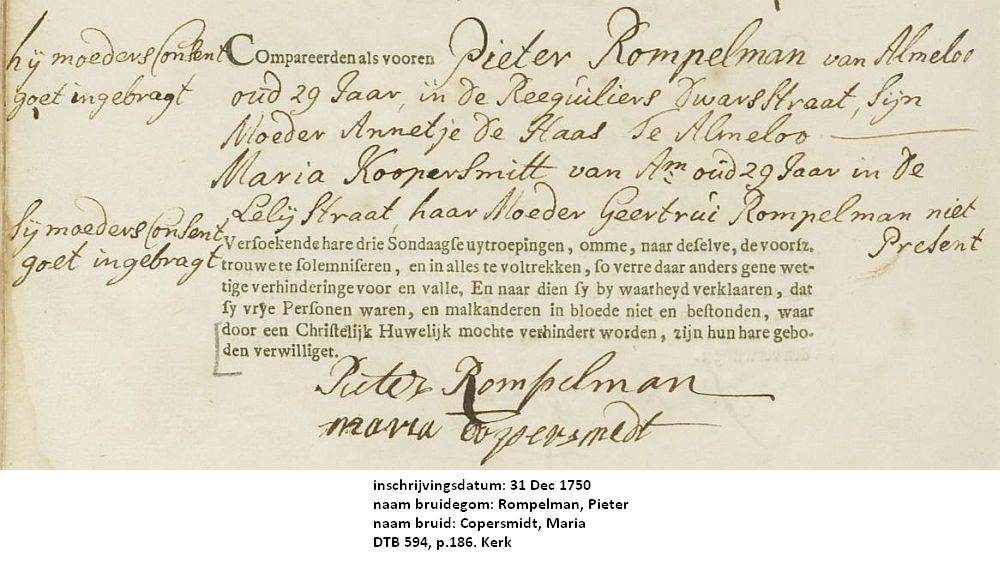 hÿ moeders Consent
goet ingebragt
COmpareerden als vooren Pieter Rompelman van Almeloo
oud 29 Jaar, in de Reeguliers Dwars Straat, Sÿn
Moeder Annetje De Haas Te Almeloo
Maria Koopersmitt van Am oud 29 Jaar in De
Lelÿ Straat, haar Moeder Geertrui Rompelman niet
Present
Sÿ moeders Consent
goet ingebragt
Versoekende hare drie Sondaagse uytroepingen, omme, naar deselve, de voorsz.
trouwe te solemniseren, en in alles te voltrekken, so verre daar anders gene wet-
tige verhinderinge voor en valle, En naar dien sy by waarheyd verklaaren, dat
sy vrye Personen waren, en malkanderen in bloede niet en bestonden, waar
door een Christelijk Huwelijk mochte verhindert worden, zijn hun hare gebo-
den verwilliget.
Pieter Rompelman
maria Copersmedt
inschrijvingsdatum: 31 Dec 1750
naam bruidegom: Rompelman, Pieter
naam bruid: Copersmidt, Maria
DTB 594, p.186. Kerk